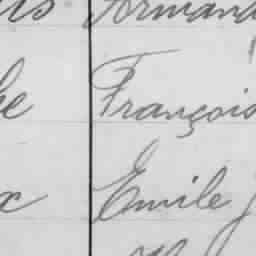 Armand
he François
x Emile J